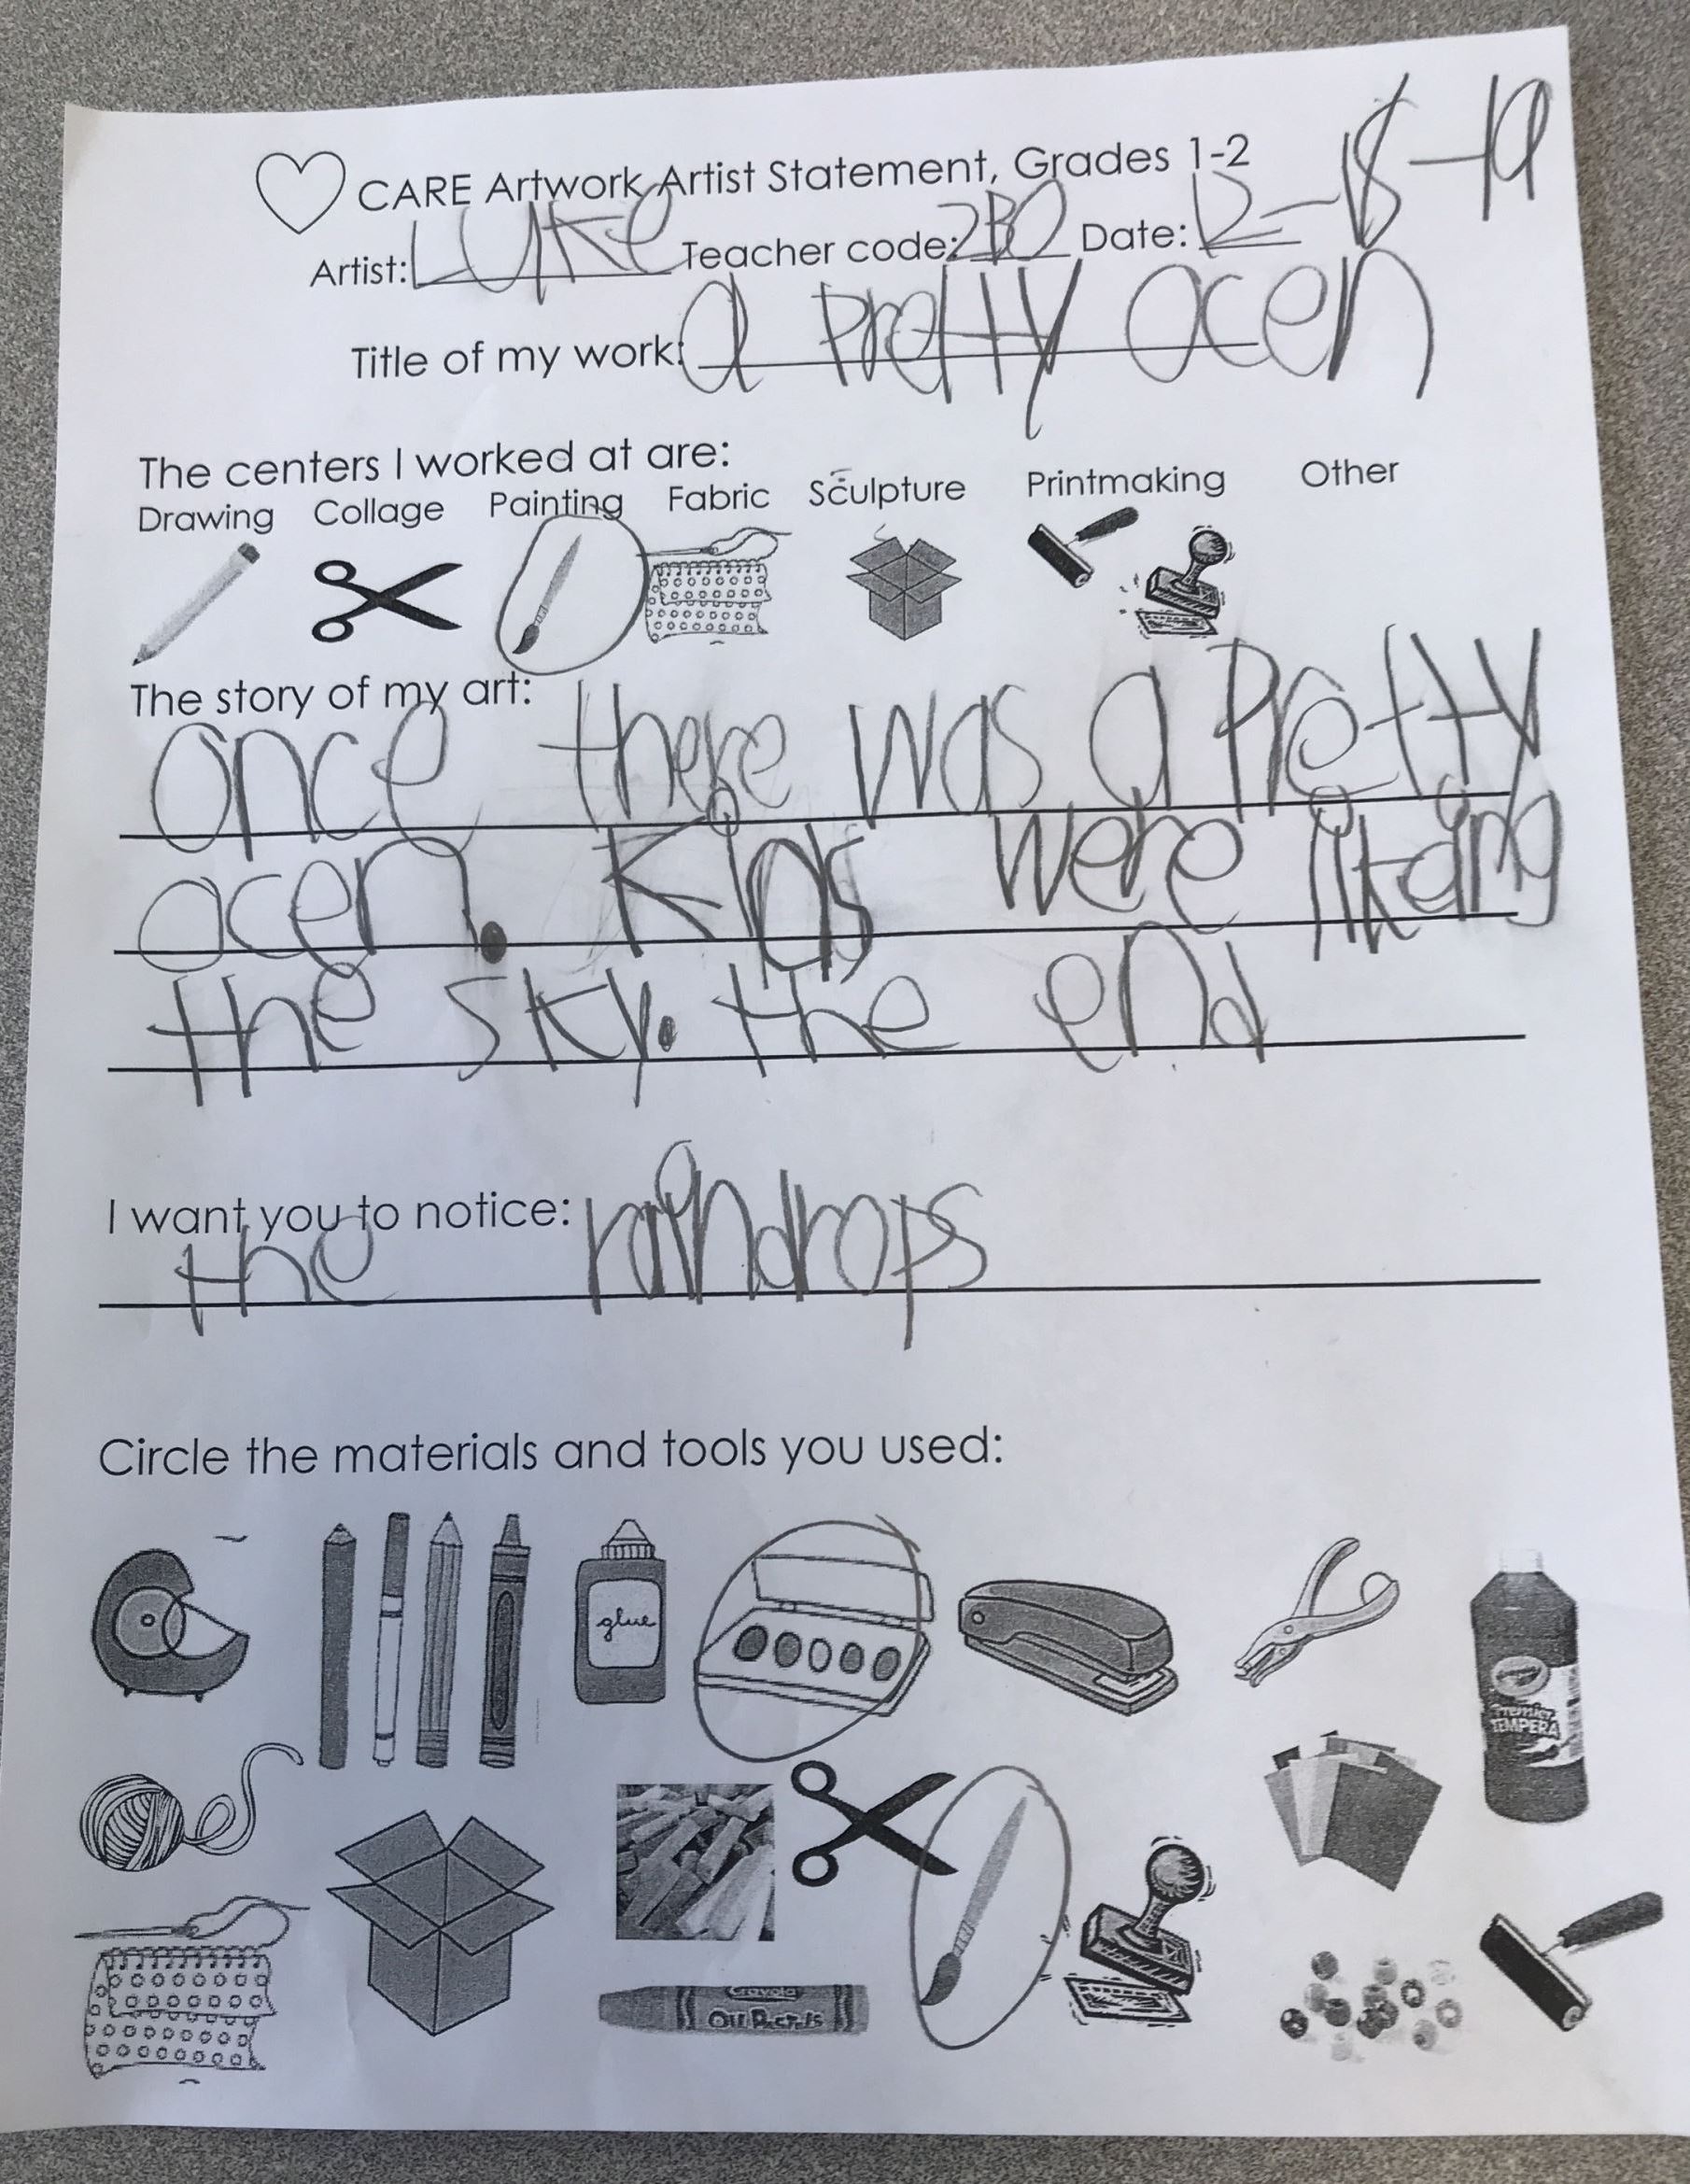 CARE Artwork Artist Statement, Grades 1-2
Artist: LUKe Teacher code: 2BO Date: 12-18-19
Title of my work: a Pretty ocen
The centers I worked at are:
Drawing Collage Painting Fabric Sculpture Printmaking Other
The story of my art:
once there was a Pretty
ocen. Kids were liking
the sky. the end
I want you to notice: raindrops
the
Circle the materials and tools you used:
glue
Premier
TEMPERA
Crayola
Oil Pastels